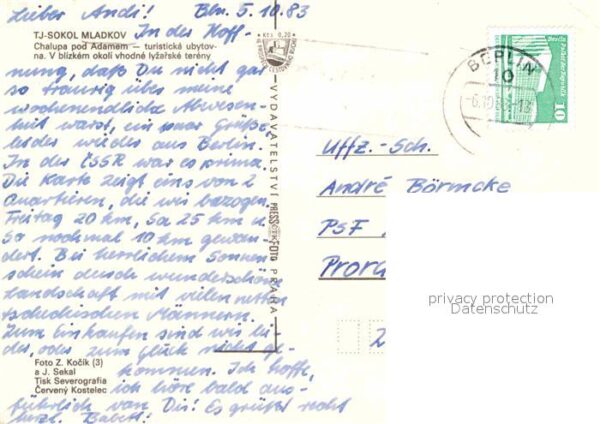 Lieber Andi! Bln. 5.10.83
TJ-SOKOL MLADKOV
Chalupa pod Adamem — turistická ubytov-
na. V blízkém okolí vhodné lyžařské terény
In der Hoff-
nung, daß Du nicht gar
so traurig über meine
wochenendliche Abwesen-
heit warst, ein paar Grüße,
leider wieder aus Berlin.
In der ČSSR war es prima.
Die Karte zeigt eins von 2
Quartieren, die wir bezogen.
Freitag 20 km, Sa 25 km u.
So nochmal 10 km gewan-
dert. Bei herrlichem Sonnen-
schein durch wunderschöne
Landschaft mit vielen netten
tschechischen Männern.
Zum Einkaufen sind wir lei-
der, oder zum Glück nicht ge-
kommen. Ich hoffe,
ich höre bald aus-
führlich von Dir! Es grüßt recht
herzl. Babett!
Foto Z. Kočík (3)
a J. Sekal
Tisk Severografia
Červený Kostelec
Kčs 0,20
VYDAVATELSTVÍ PRESSFOTO PRAHA
BERLIN
10
10
Uffz.-Sch.
André Börmcke
PSF
Pror
2
privacy protection
Datenschutz